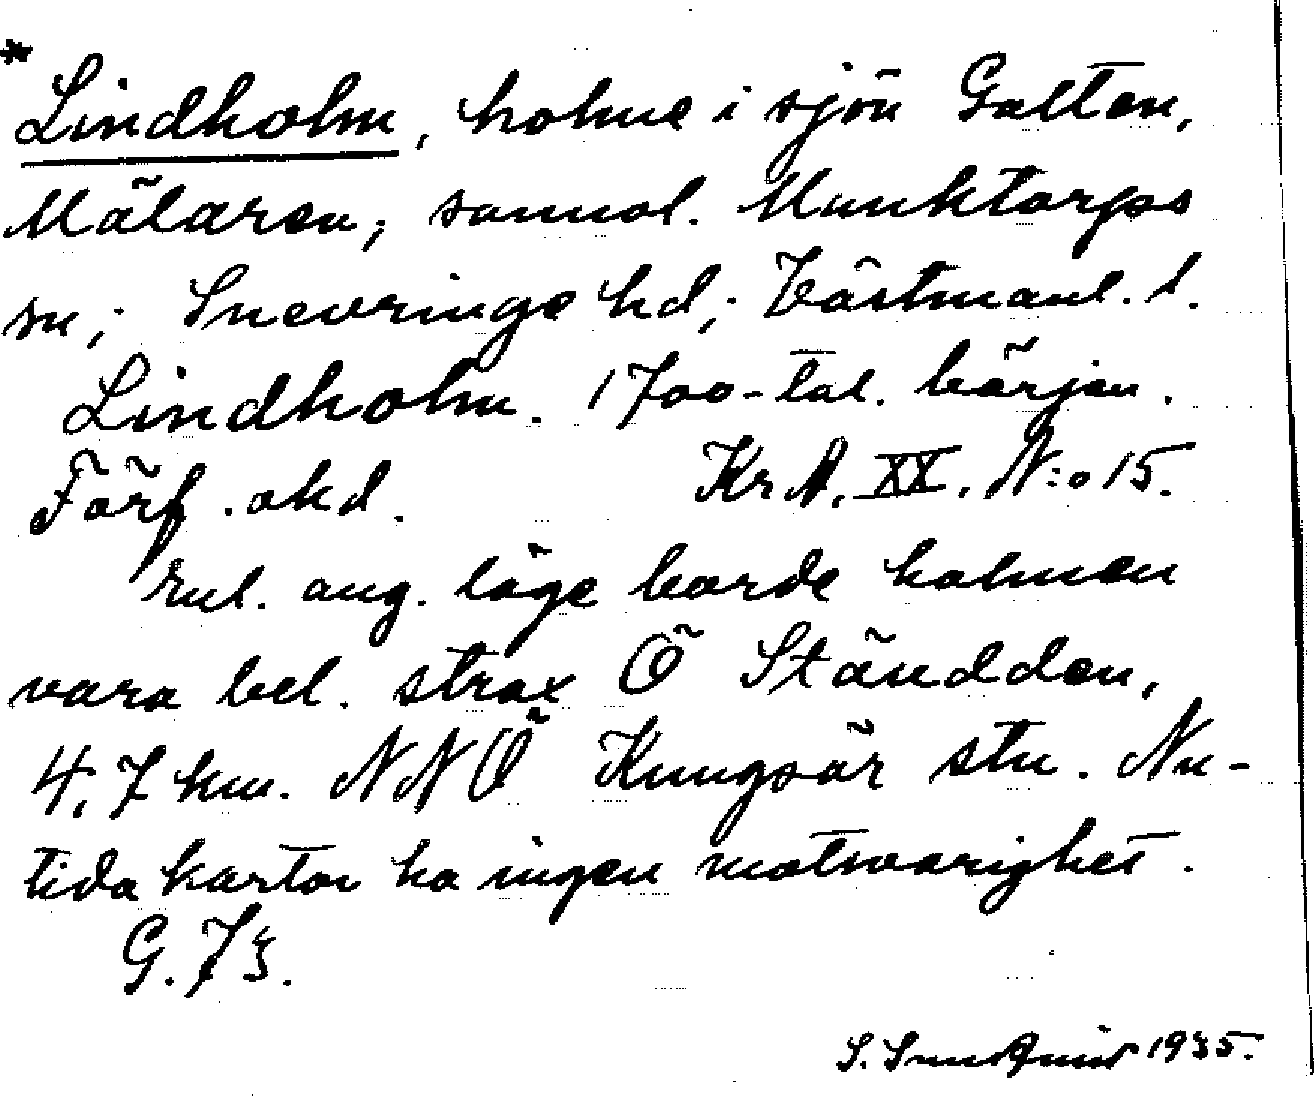 * Lindholm, holme i sjön Galten,
Mälaren; sannol. Munktorps
sn; Snevringe hd; Västmanl. l.
Lindholm. 1700-tal. början.
Förf. okd. Kr A. XX. N:o 15.
Enl. ang. läge borde holmen
vara bel. strax Ö Ständden,
4,7 km. NNÖ Kungsör stn. Nu-
tida kartor ha ingen motsvarighet.
G. 73.
S. 1935.